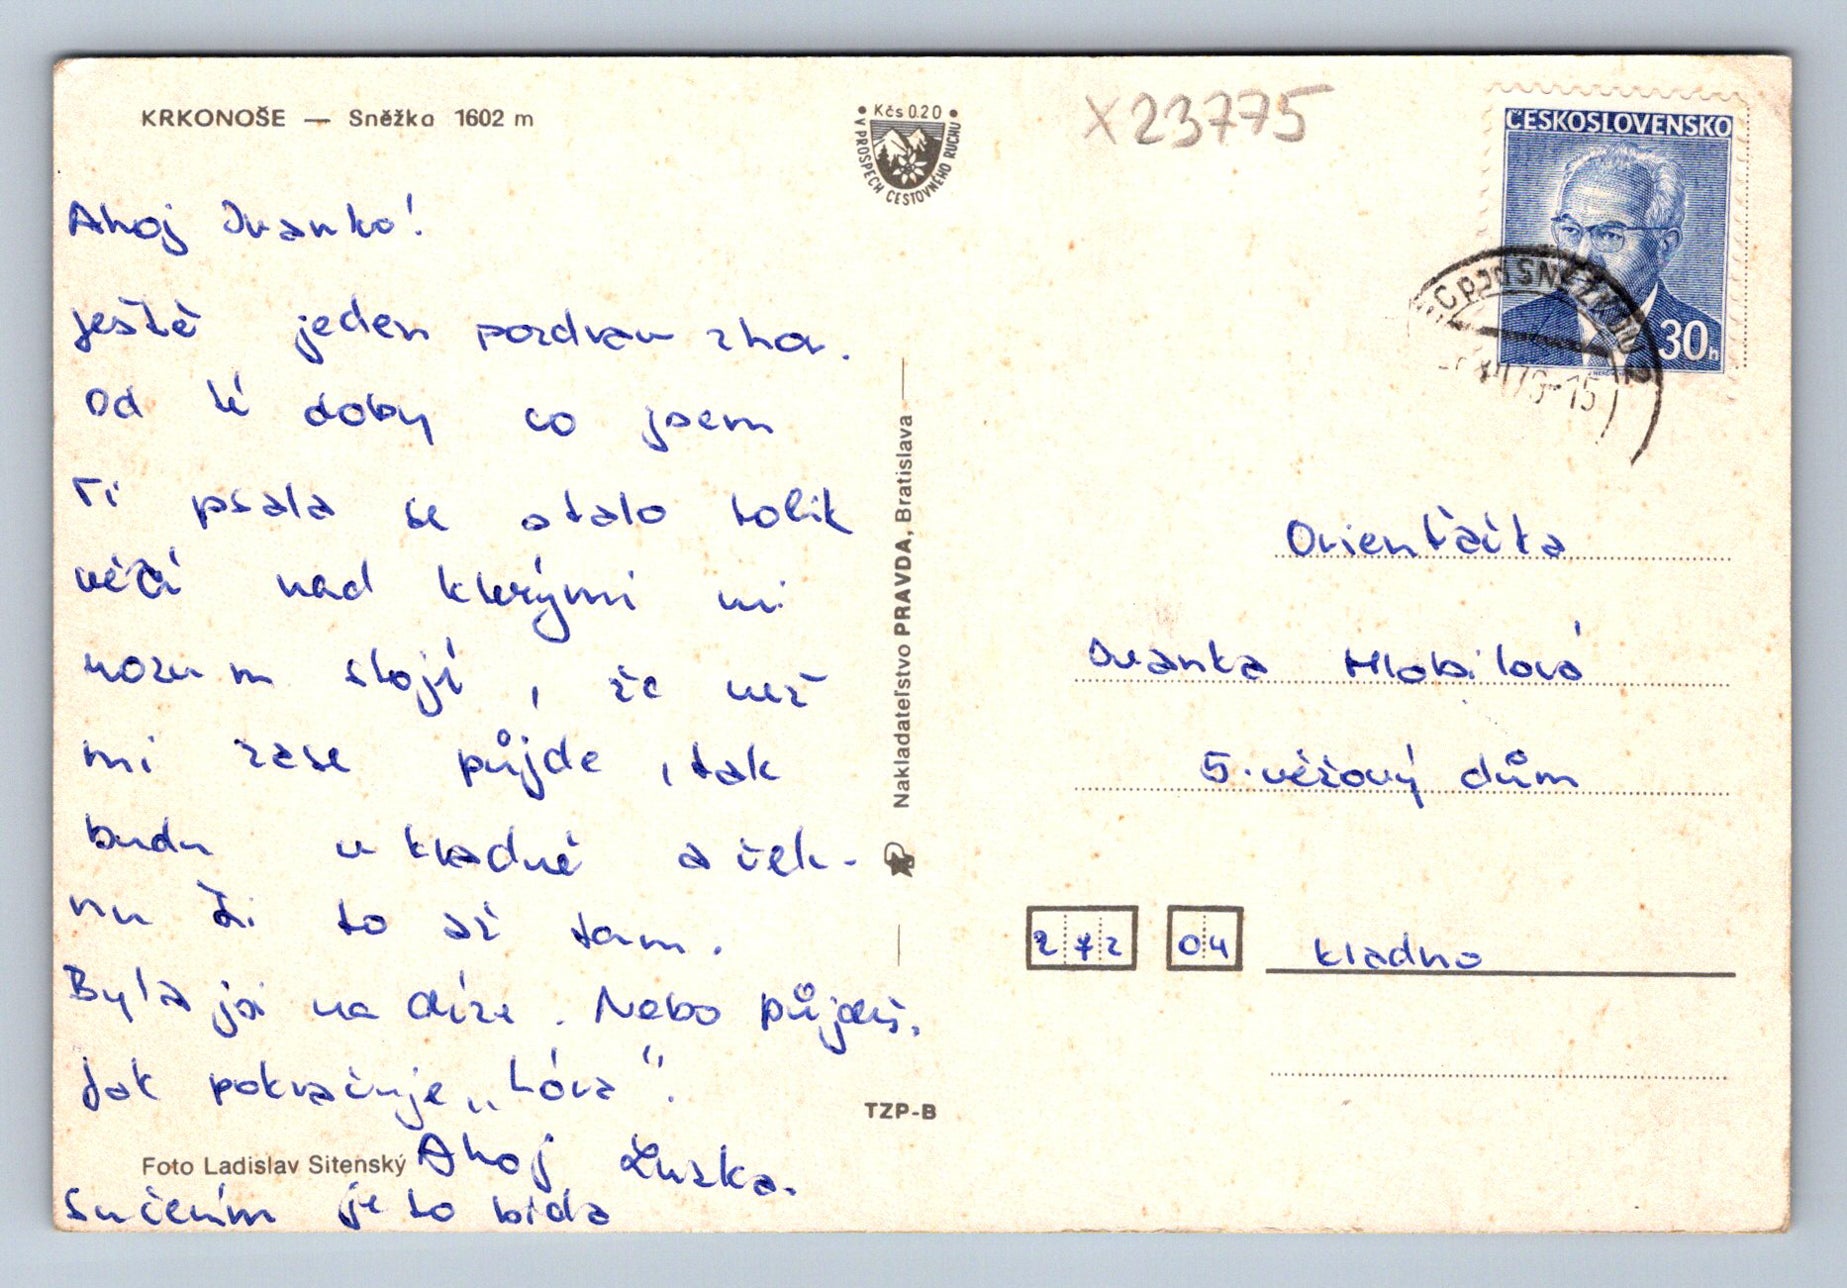 KRKONOŠE — Sněžka 1602 m
• Kčs 0.20 •
V PROSPĚCH CESTOVNÉHO RUCHU
X23775
ČESKOSLOVENSKO
30h
SNĚŽKOU
Ahoj Ivanko!
Ještě jeden pozdrav z hor.
Od té doby co jsem
Ti psala se stalo tolik
věcí nad kterými mi
rozum stojí, že než
mi zase půjde, tak
budu v Kladně a řek-
nu Ti to až tam.
Byla jsi na  . Nebo půjdeš.
Jak pokračuje „Lóra“.
Ahoj Zuzka.
S učením je to bída
Foto Ladislav Sitenský
Nakladateľstvo PRAVDA, Bratislava
TZP-B
Orienťačka
Ivanka Hlobilová
5. věžový dům
272 04 Kladno